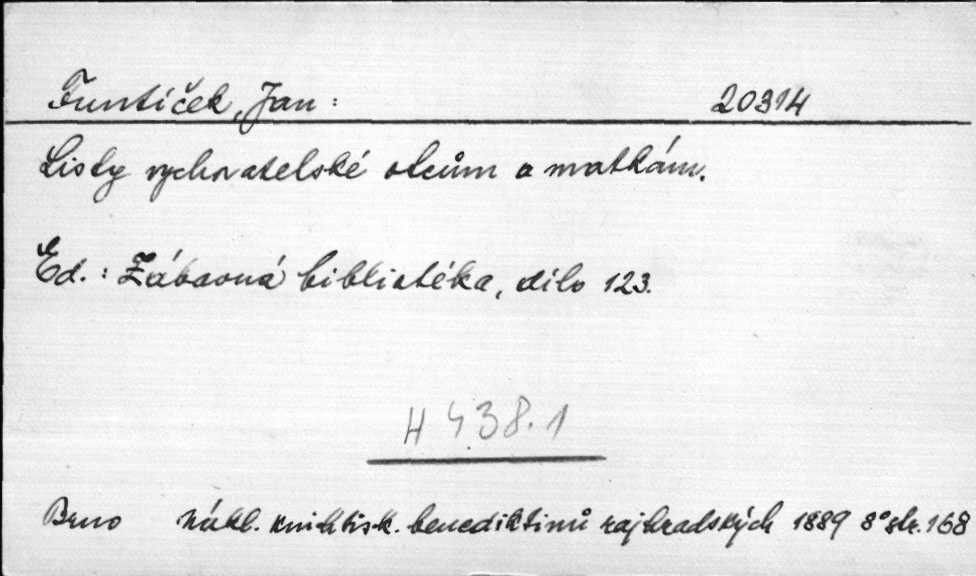 Funtíček, Jan: 20314
Listy vychovatelské otcům a matkám.
Ed.: Zábavná bibliotéka, dílo 123.
H 438.1
Brno nákl. knihtisk. benediktinů rajhradských 1889 8° str. 168